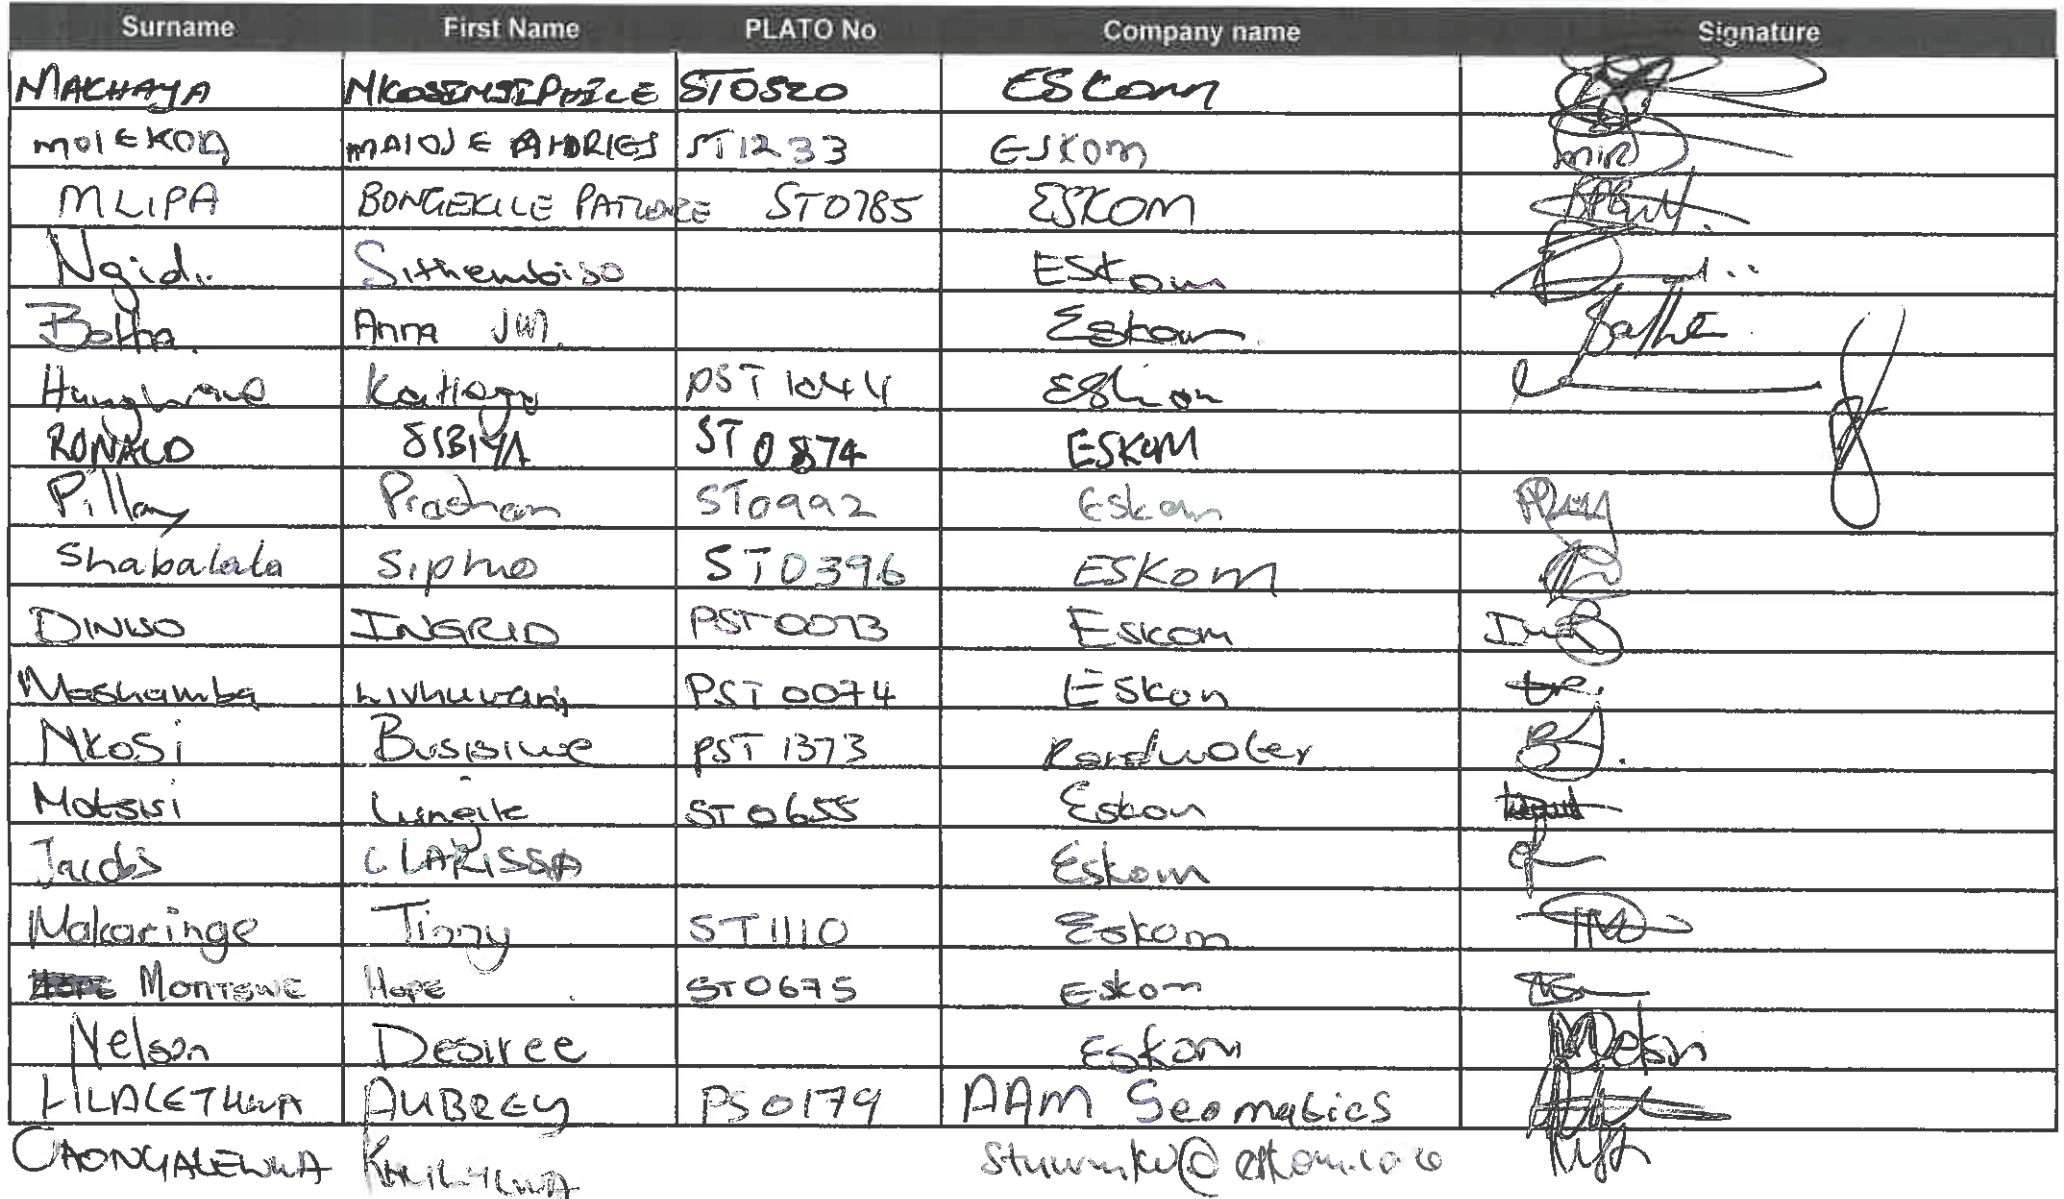 Surname First Name PLATO No Company name Signature
MAKHAYA ST0520 ESKom
MOLEKOA ANDRIES ST1233 ESKom
MLIPA BONGEKILE PATIENCE ST0785 ESKOM
Ngidi Sithembiso ESKom
Botha Anna JM. Eskom
Katlego PST 1244 Eskom
RONALD SIBIYA ST 0874 ESKOM
Pillay Prashan ST0992 Eskom
Shabalala Sipho ST0396 ESKom
INGRID PST0073 Eskom
Mashamba Livhuwani PST 0074 Eskom
Nkosi Busisiwe PST 1373 Randwater
ST0655 Eskom
Jacobs CLARISSA Eskom
Makaringe Tinny ST1110 Eskom
MONTSWE HOPE ST0675 Eskom
Nelson Desiree Eskom
HLALETHWA AUBREY PS0179 AAM Geomatics